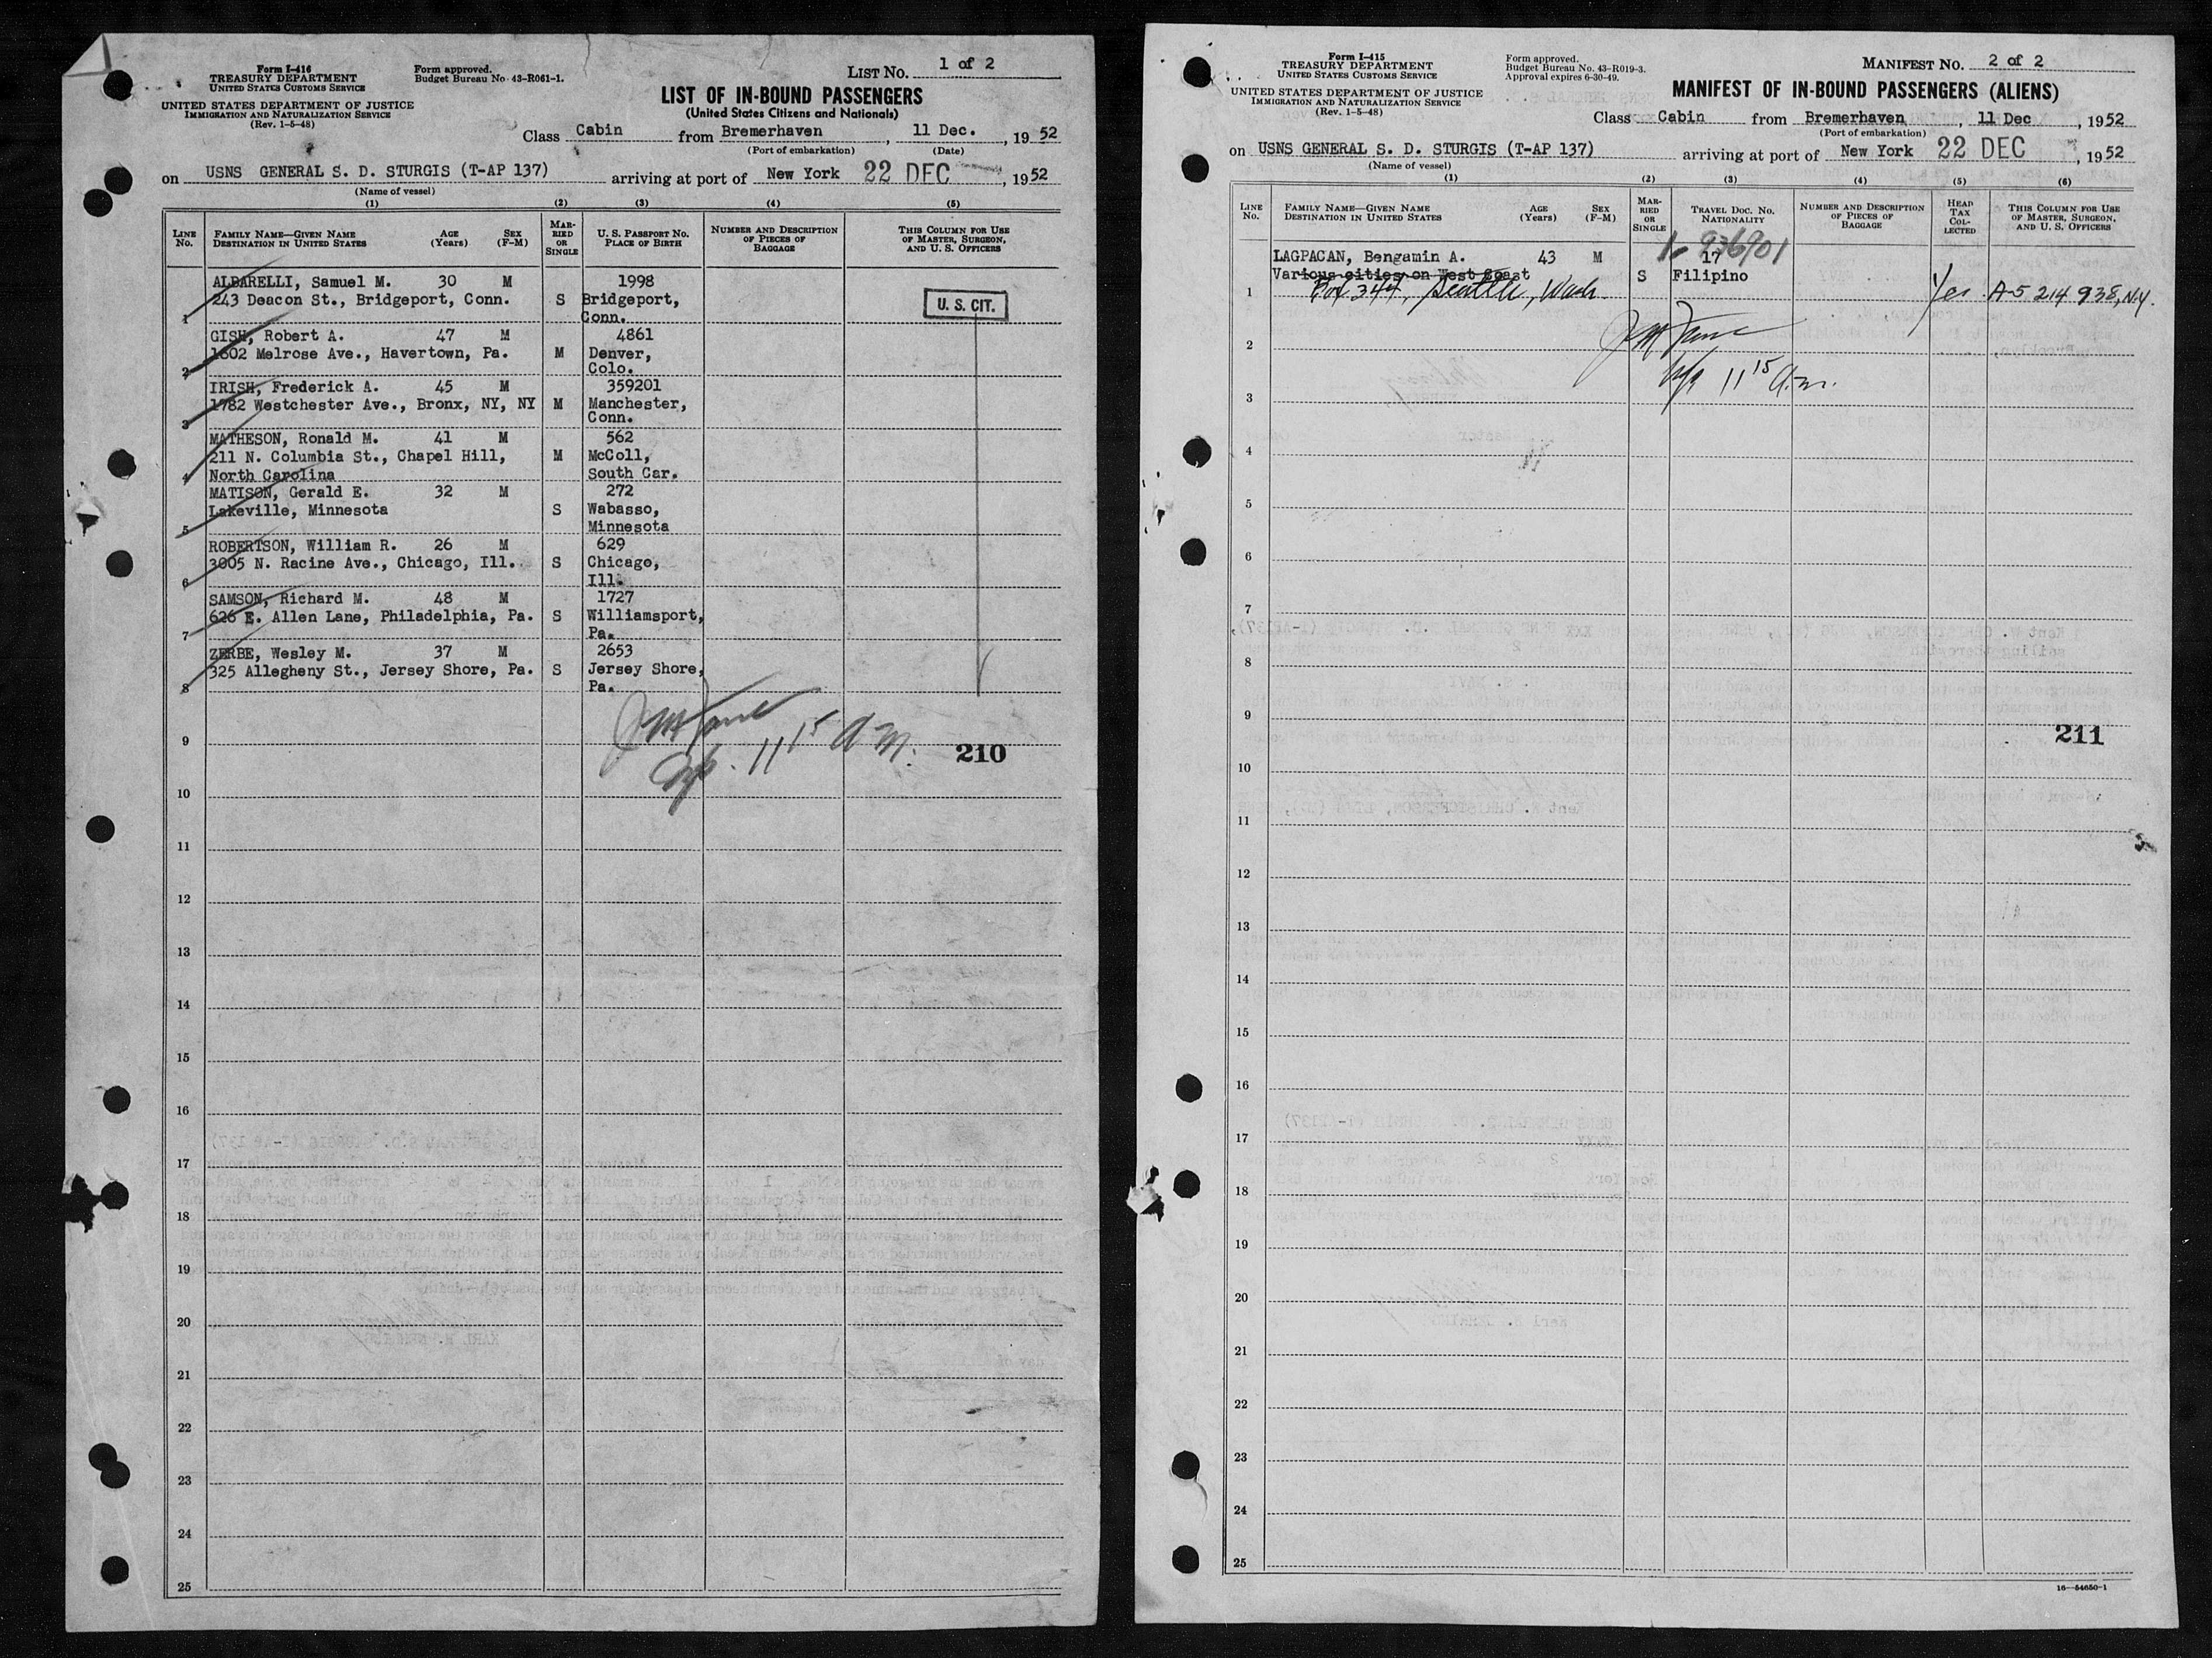 Form I-416
TREASURY DEPARTMENT
UNITED STATES CUSTOMS SERVICE
UNITED STATES DEPARTMENT OF JUSTICE
IMMIGRATION AND NATURALIZATION SERVICE
(Rev. 1-5-48)
Form approved.
Budget Bureau No. 43-R061-1.
LIST NO. 1 of 2
LIST OF IN-BOUND PASSENGERS
(United States Citizens and Nationals)
Class Cabin from Bremerhaven, 11 Dec., 1952
(Port of embarkation) (Date)
on USNS GENERAL S. D. STURGIS (T-AP 137) arriving at port of New York 22 DEC, 1952
(Name of vessel)
(1) (2) (3) (4) (5)
LINE NO. FAMILY NAME—GIVEN NAME DESTINATION IN UNITED STATES AGE (Years) SEX (F-M) MARRIED OR SINGLE U. S. PASSPORT NO. PLACE OF BIRTH NUMBER AND DESCRIPTION OF PIECES OF BAGGAGE THIS COLUMN FOR USE OF MASTER, SURGEON, AND U. S. OFFICERS
ALBARELLI, Samuel M. 30 M 1998
243 Deacon St., Bridgeport, Conn. S Bridgeport, U. S. CIT.
1 Conn.
GISH, Robert A. 47 M 4861
1602 Melrose Ave., Havertown, Pa. M Denver,
2 Colo.
IRISH, Frederick A. 45 M 359201
1782 Westchester Ave., Bronx, NY, NY M Manchester,
3 Conn.
MATHESON, Ronald M. 41 M 562
211 N. Columbia St., Chapel Hill, M McColl,
4 North Carolina South Car.
MATISON, Gerald E. 32 M 272
Lakeville, Minnesota S Wabasso,
5 Minnesota
ROBERTSON, William R. 26 M 629
3005 N. Racine Ave., Chicago, Ill. S Chicago,
6 Ill.
SAMSON, Richard M. 48 M 1727
626 E. Allen Lane, Philadelphia, Pa. S Williamsport,
7 Pa.
ZERBE, Wesley M. 37 M 2653
325 Allegheny St., Jersey Shore, Pa. S Jersey Shore,
8 Pa.
9
11 15 a.m. 210
10
11
12
13
14
15
16
17
18
19
20
21
22
23
24
25
Form I-415
TREASURY DEPARTMENT
UNITED STATES CUSTOMS SERVICE
UNITED STATES DEPARTMENT OF JUSTICE
IMMIGRATION AND NATURALIZATION SERVICE
(Rev. 1-5-48)
Form approved.
Budget Bureau No. 43-R019-3.
Approval expires 6-30-49.
MANIFEST NO. 2 of 2
MANIFEST OF IN-BOUND PASSENGERS (ALIENS)
Class Cabin from Bremerhaven, 11 Dec, 1952
(Port of embarkation)
on USNS GENERAL S. D. STURGIS (T-AP 137) arriving at port of New York 22 DEC, 1952
(Name of vessel)
(1) (2) (3) (4) (5) (6)
LINE NO. FAMILY NAME—GIVEN NAME DESTINATION IN UNITED STATES AGE (Years) SEX (F-M) MARRIED OR SINGLE TRAVEL DOC. NO. NATIONALITY NUMBER AND DESCRIPTION OF PIECES OF BAGGAGE HEAD TAX COLLECTED THIS COLUMN FOR USE OF MASTER, SURGEON, AND U. S. OFFICERS
936901
LAGPACAN, Bengamin A. 43 M 17
Various cities on West Coast S Filipino
1 Box 344, Seattle, Wash. Yes A-5 214 938, N.Y.
2
11 15 a.m.
3
4
5
6
7
8
9
211
10
11
12
13
14
15
16
17
18
19
20
21
22
23
24
25
16—54650-1